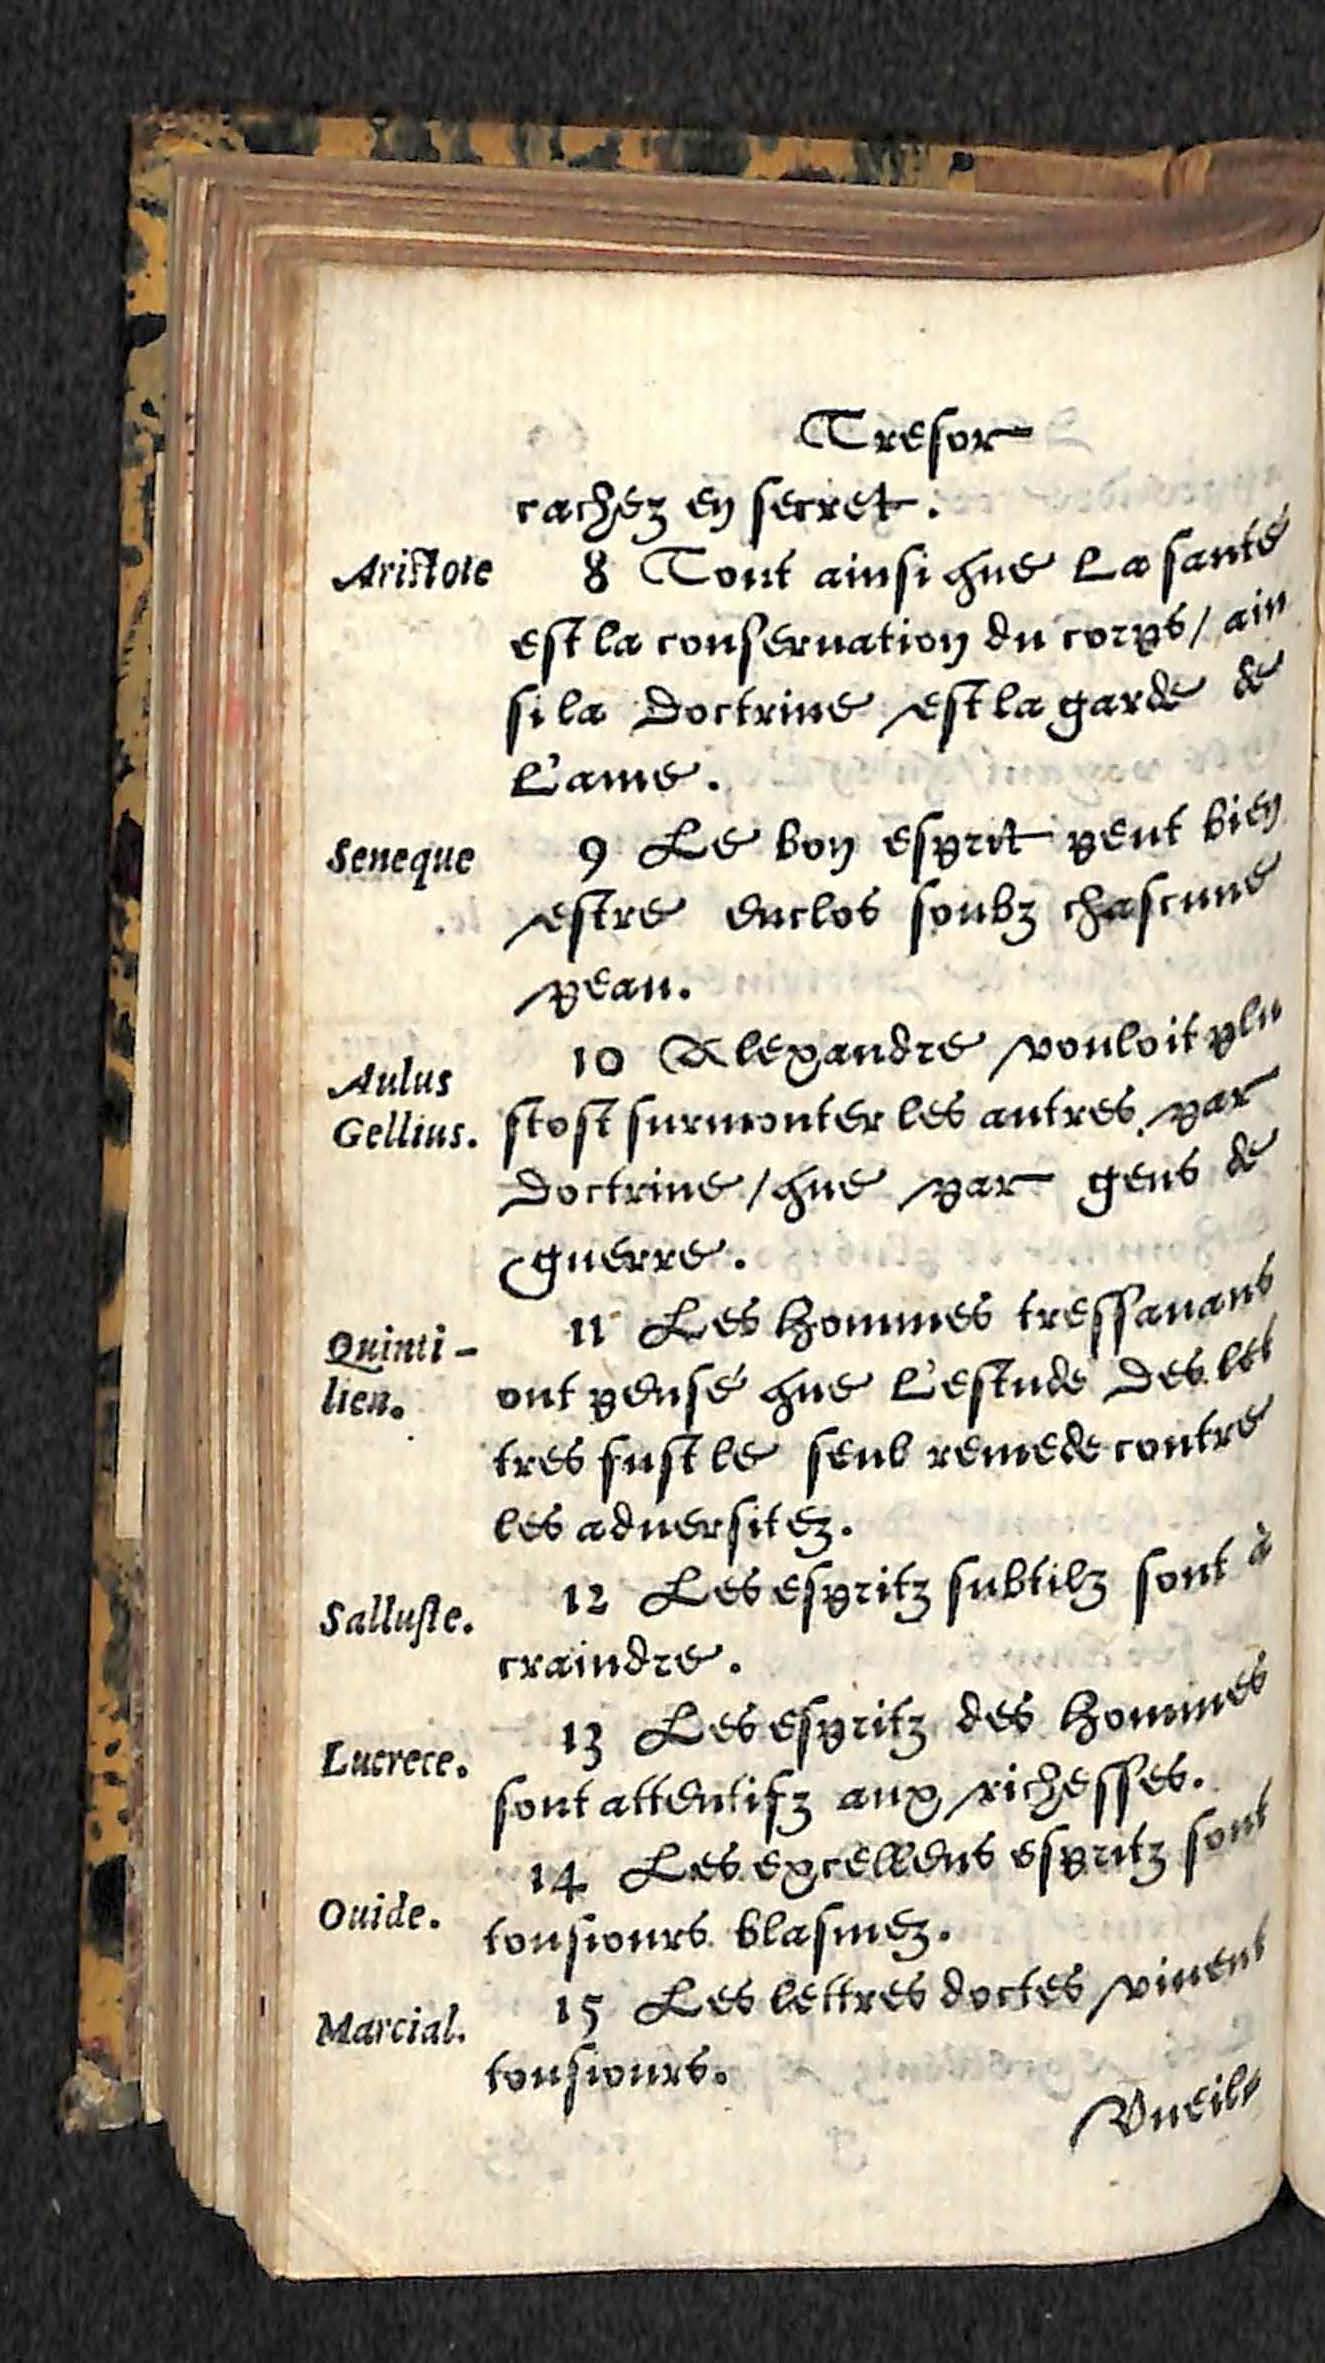 Tresor
cachez en secret.
Aristote 8 Tout ainsi que la santé
est la conseruation du corps/ ain
si la doctrine est la garde de
l'ame.
Seneque 9 Le bon esprit peut bien
estre enclos soubz chascune
peau.
Aulus 10 Alexandre vouloit plu
Gellius. stost surmonter les autres par
doctrine/ que par gens de
guerre.
Quinti- 11 Les hommes tressauans
lien. ont pensé que l'estude des let
tres fust le seul remede contre
les aduersitez.
Salluste. 12 Les espritz subtilz sont à
craindre.
Lucrece. 13 Les espritz des hommes
sont attentifz aux richesses.
Ouide. 14 Les excellens espritz sont
tousiours blasmez.
Marcial. 15 Les lettres doctes viuent
tousiours.
Vueile